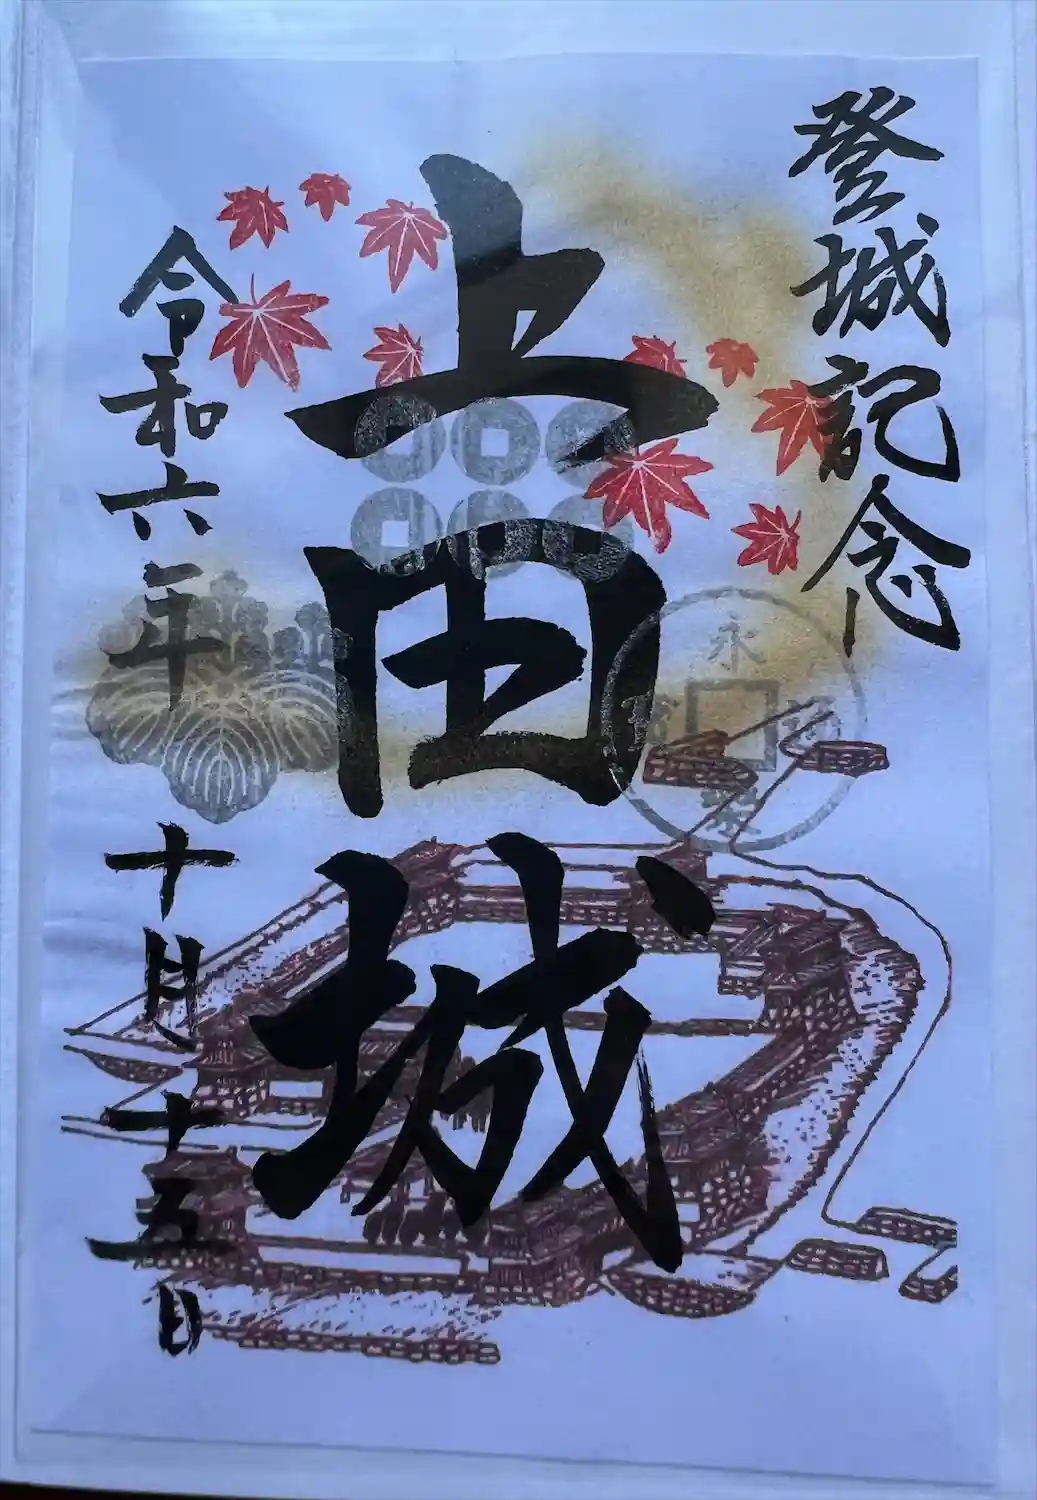 登城記念
上田城
令和六年十月二十五日
永